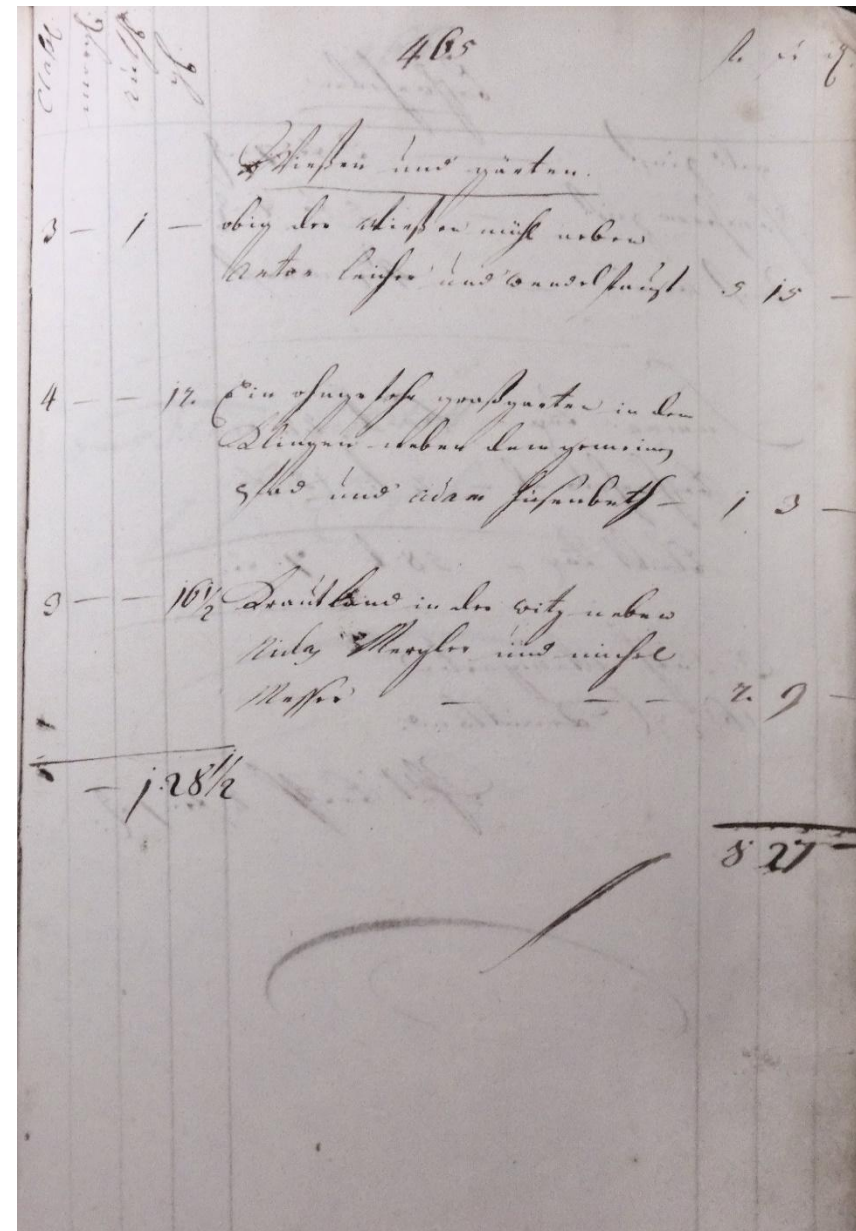 465
Wießen und gärten.
3 – 1 – obig der Wießen mühl neben
Anton leicher und wendel faust 5 15 –
4 – – 12. Ein ohngefehr graßgarten in den
Klingen neben dem gemeinen
Pfad und adam hisenbeth – 1 3 –
3 – – 16½ Krautland in der witz neben
Niclaß Mergler und michel
Messer – – – 2. 9 –
– 1 28½
8 27 –